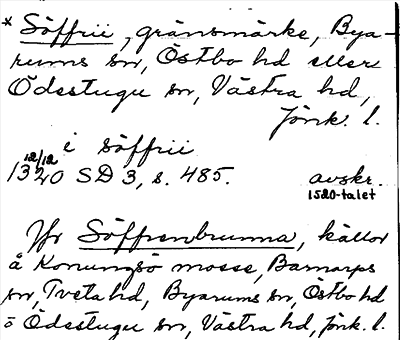 * Söffrii, gränsmärke, Bya-
rums sn, Östbo hd eller
Ödestugu sn, Västra hd,
Jönk. l.
i söffrii
12/12
1320 SD 3, s. 485. avskr.
1520-talet
Jfr Söffrenbrunna, källor
å Konungsö mosse, Barnarps
sn, Tveta hd, Byarums sn, Östbo hd
o Ödestugu sn, Västra hd, Jönk. l.